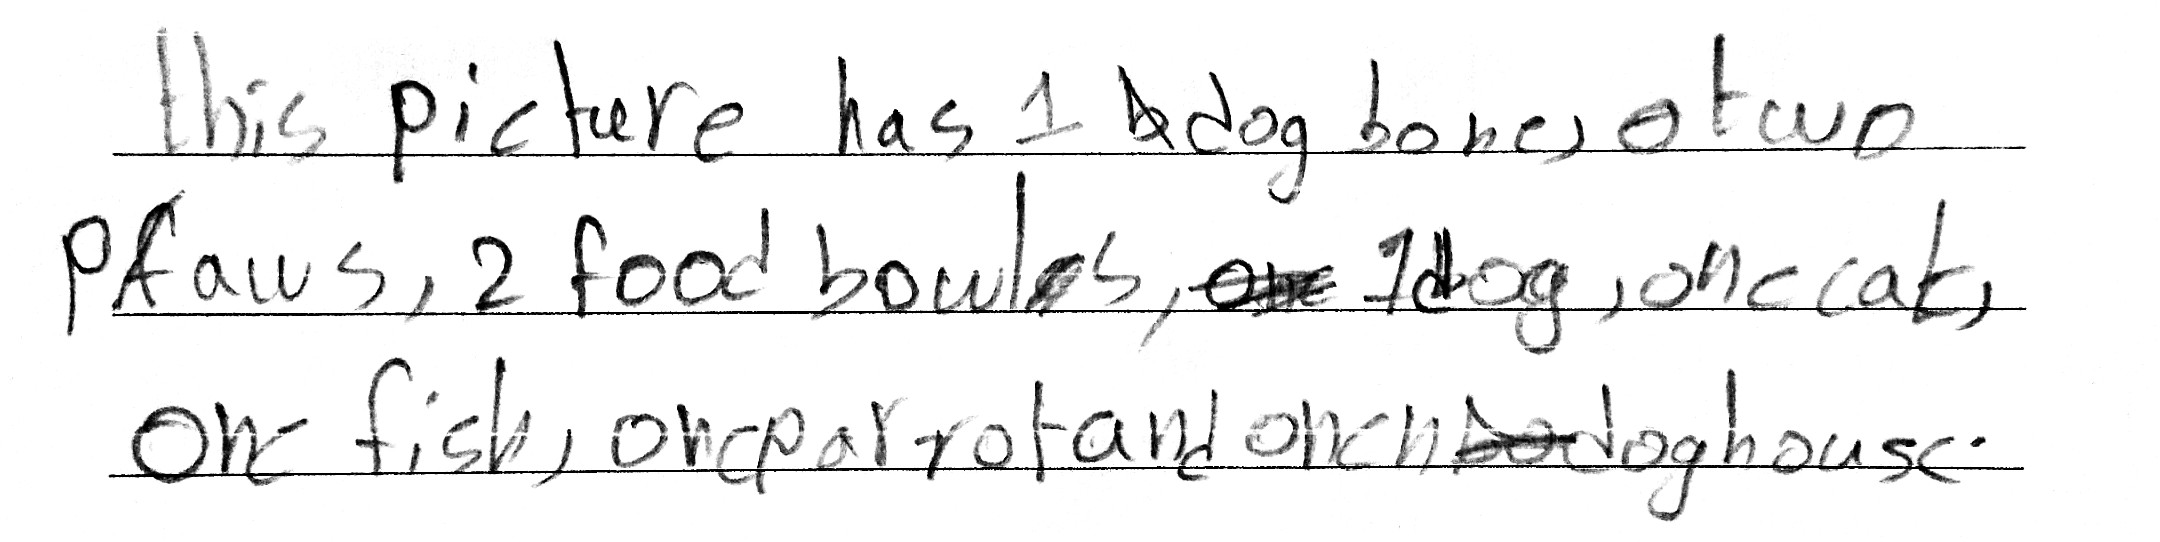 this picture has 1 dog bone, two
paws, 2 food bowls, 1 dog, one cat,
one fish, one parrot and one doghouse.